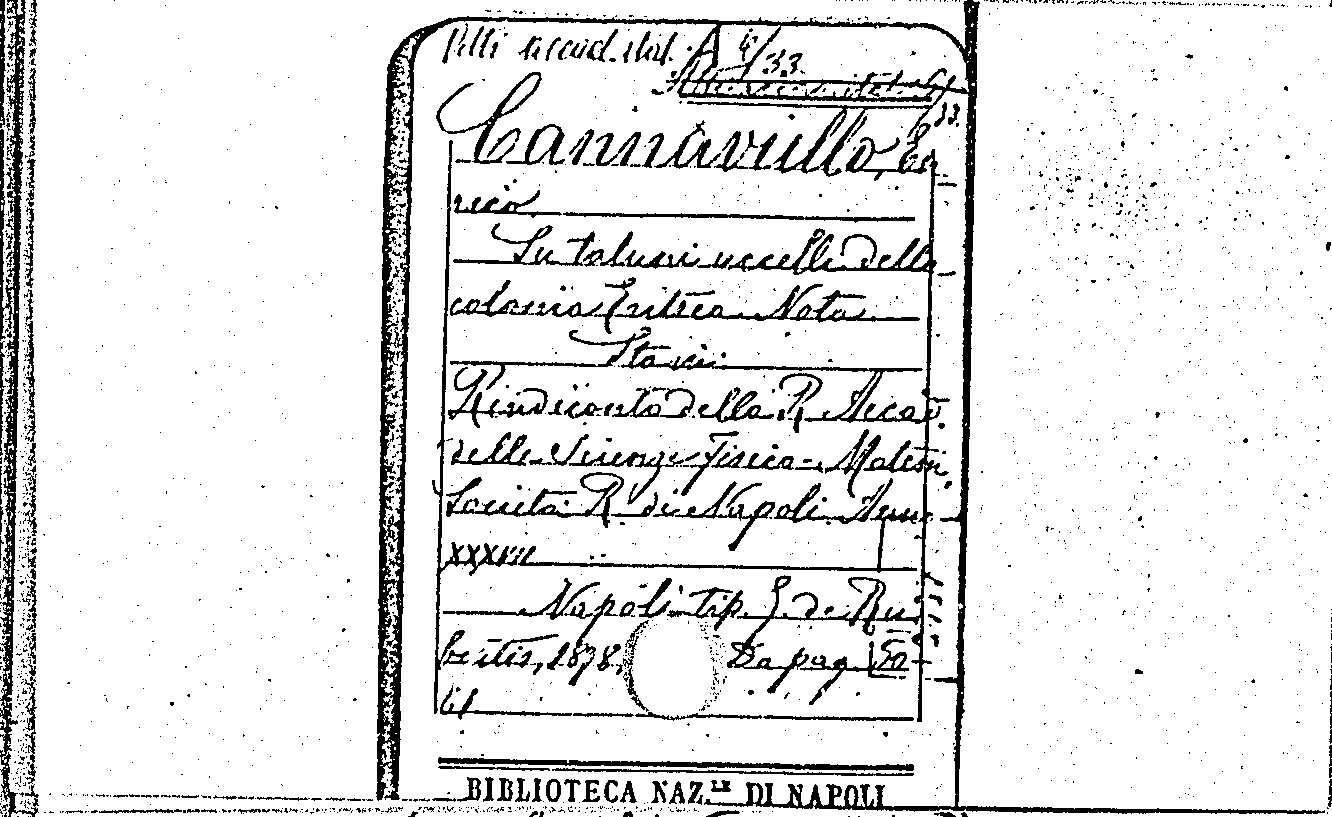 Atti accad. ital. A 6/33
6/33.
Cannaviello, En
rico
Su taluni uccelli della
colonia Eritrea. Nota.
Sta in:
Rendiconto della R. Accad.
delle Scienze Fisico-Matem.
Società R. di Napoli Anno
XXXVII
Napoli tip. E. de Ru
bertis, 1898. Da pag. 50
61
BIBLIOTECA NAZ.LE DI NAPOLI